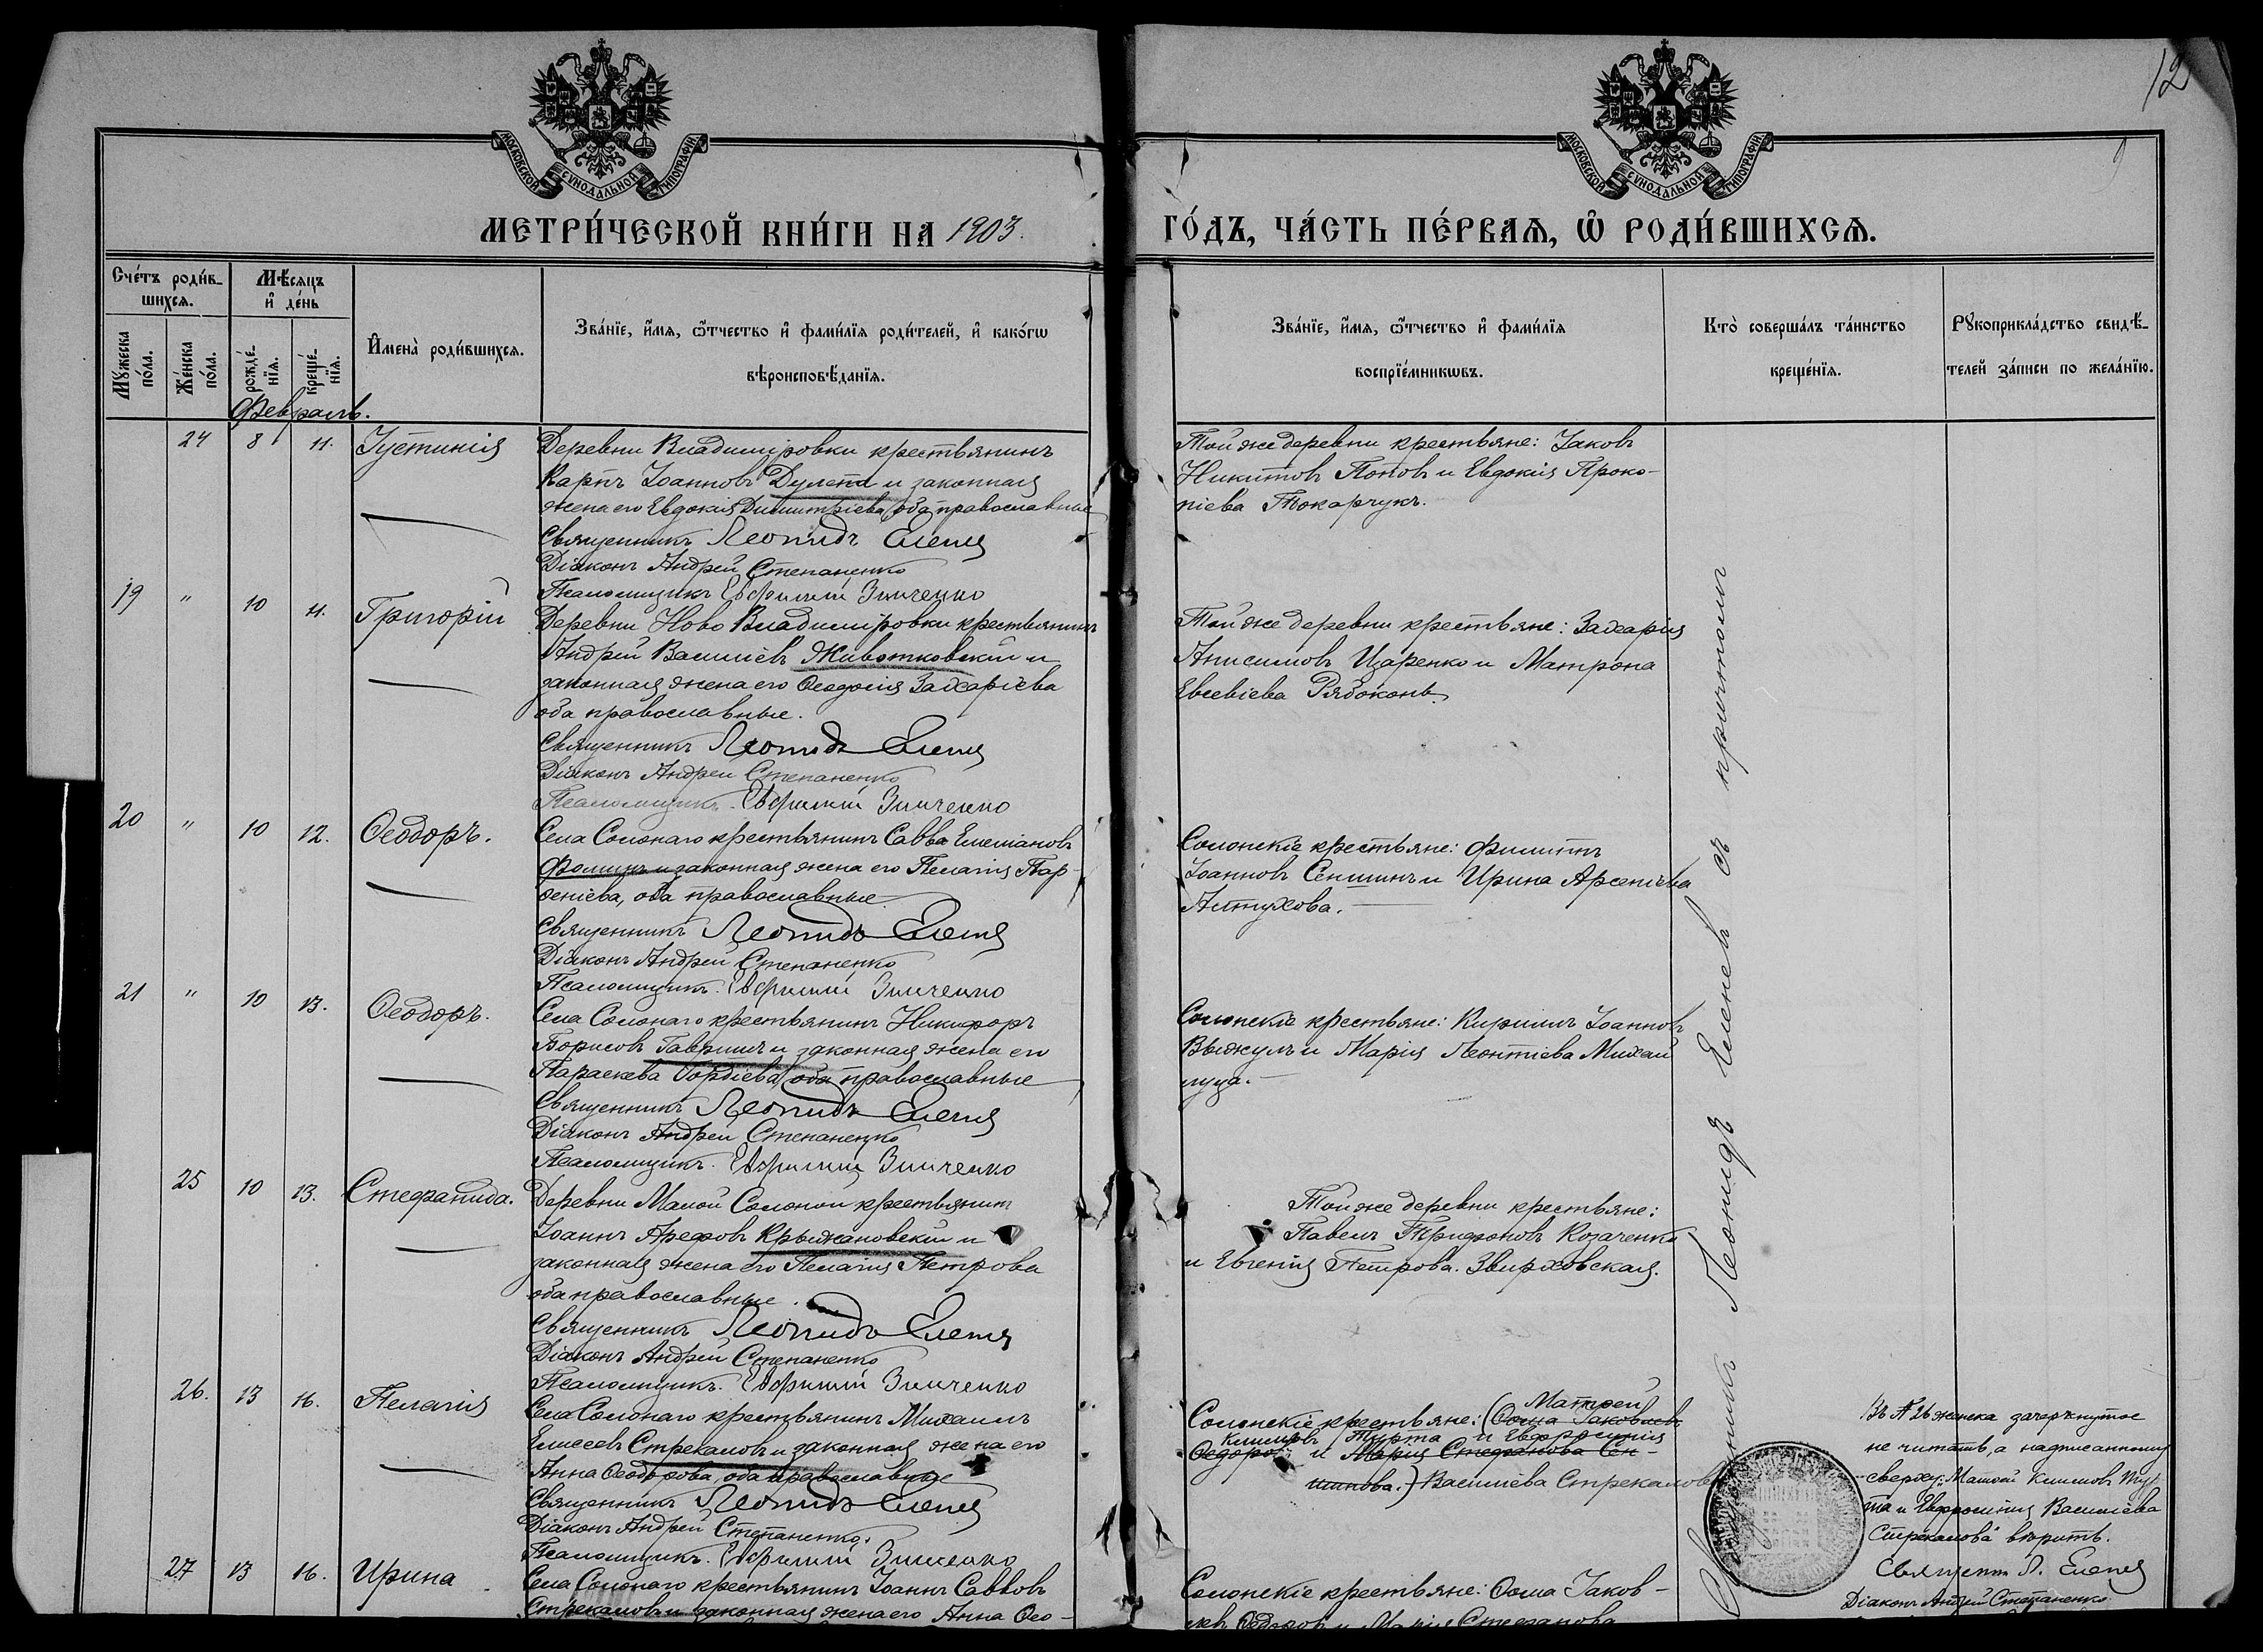 12
МОСКОВСКОЙ СѴНОДАЛЬНОЙ ТИПОГРАФІИ
МОСКОВСКОЙ СѴНОДАЛЬНОЙ ТИПОГРАФІИ
МЕТРИ́ЧЕСКОЙ КНИ́ГИ НА 1903.
ГО́ДЪ, ЧА́СТЬ ПЕ́РВАЯ, Ѡ РОДИ́ВШИХСЯ.
Сче́тъ роди́в-
шихся.
Мѣ́сяцъ
и де́нь
Мꙋ́жеска
по́ла.
Же́нска
по́ла.
рожде́-
нїя.
креще́-
нїя.
Имена̀ роди́вшихся.
Зва́нїе, и́мя, ѻ́тчество и фами́лїя роди́телей, и како́гѡ
вѣроисповѣ́данїя.
Зва́нїе, и́мя, ѻ́тчество и фами́лїя
воспрїе́мникѡвъ.
Кто̀ соверша́лъ та́инство
креще́нїя.
Рꙋкоприкла́дство свидѣ́-
телей за́писи по жела́нїю.
Февраль.
24 8 11. Іустинія
Деревни Владиміровки крестьянинъ
Карпъ Іоанновъ Дулепа и законная
жена его Евдокія Димитріева, оба православные
Священникъ Леонидъ Еленев
Діаконъ Андрей Степаненко
Псаломщикъ Евфимій Зинченко
Той же деревни крестьяне: Іаковъ
Никитовъ Поповъ и Евдокія Проко-
піева Токарчукъ.
19 " 10 11. Григорій
Деревни Ново Владиміровки крестьянинъ
Андрей Васильевъ Животковскій и
законная жена его Ѳеодосія Захаріева
оба православные.
Священникъ Леонидъ Еленев
Діаконъ Андрей Степаненко
Псаломщикъ. Евфимій Зинченко
Той же деревни крестьяне: Захарія
Анисимовъ Царенко и Матрона
Евсевіева Рябоконь.
20 " 10 12. Ѳеодоръ.
Села Солонаго крестьянинъ Савва Емеліановъ
Фоминъ и законная жена его Пелагія Пар-
ѳеніева, оба православные.
Священникъ Леонидъ Еленев
Діаконъ Андрей Степаненко
Псаломщикъ. Евфимій Зинченко
Солонскіе крестьяне: Филиппъ
Іоанновъ Сеншинъ и Ирина Арсеніева
Алтухова.
21 " 10 13. Ѳеодоръ.
Села Солонаго крестьянинъ Никифоръ
Борисовъ Гаврилъ и законная жена его
Параскева Гордіева, оба православные
Священникъ Леонидъ Еленев
Діаконъ Андрей Степаненко
Псаломщикъ. Евфимій Зинченко
Солонскіе крестьяне: Кириллъ Іоанновъ
и Марія Леонтіева Михай
луца.
25 10 13. Стефанида.
Деревни Малой Солоной крестьянинъ
Іоаннъ Арефовъ Крыжановскій и
законная жена его Пелагія Петрова
оба православные.
Священникъ Леонидъ Еленев
Діаконъ Андрей Степаненко
Псаломщикъ. Евфимій Зинченко
Той же деревни крестьяне:
Павелъ Трифоновъ Козаченко
и Евгенія Петрова. Звирховская.
26. 13 16. Пелагія
Села Солонаго крестьянинъ Михаилъ
Елисеевъ Стрекаловъ и законная жена его
Анна Ѳеодорова, оба православные
Священникъ Леонидъ Еленев
Діаконъ Андрей Степаненко.
Псаломщикъ. Евфимій Зинченко
Матѳей
Солонскіе крестьяне: (Ѳома Іаковлевъ
Климовъ Турта и Евфросинія
Ѳедоровъ и Марія Стефанова Сен-
шинова.) Васильева Стрекалова
Въ № 26 женска зачеркнутое
не читать, а надписанному
сверху: "Матѳей Климовъ Тур
та и Евфросинія Васильева
Стрекалова" вѣрить.
Священ. Л. Еленев
Діаконъ Андрей Степаненко
27 13 16. Ирина
Села Солонаго крестьянинъ Іоаннъ Саввовъ
Стрекаловъ и законная жена его Анна Ѳео-
Солонскіе крестьяне: Ѳома Іаков-
левъ Ѳедоровъ и Марія Стефанова
Священникъ Леонидъ Еленевъ съ причтомъ